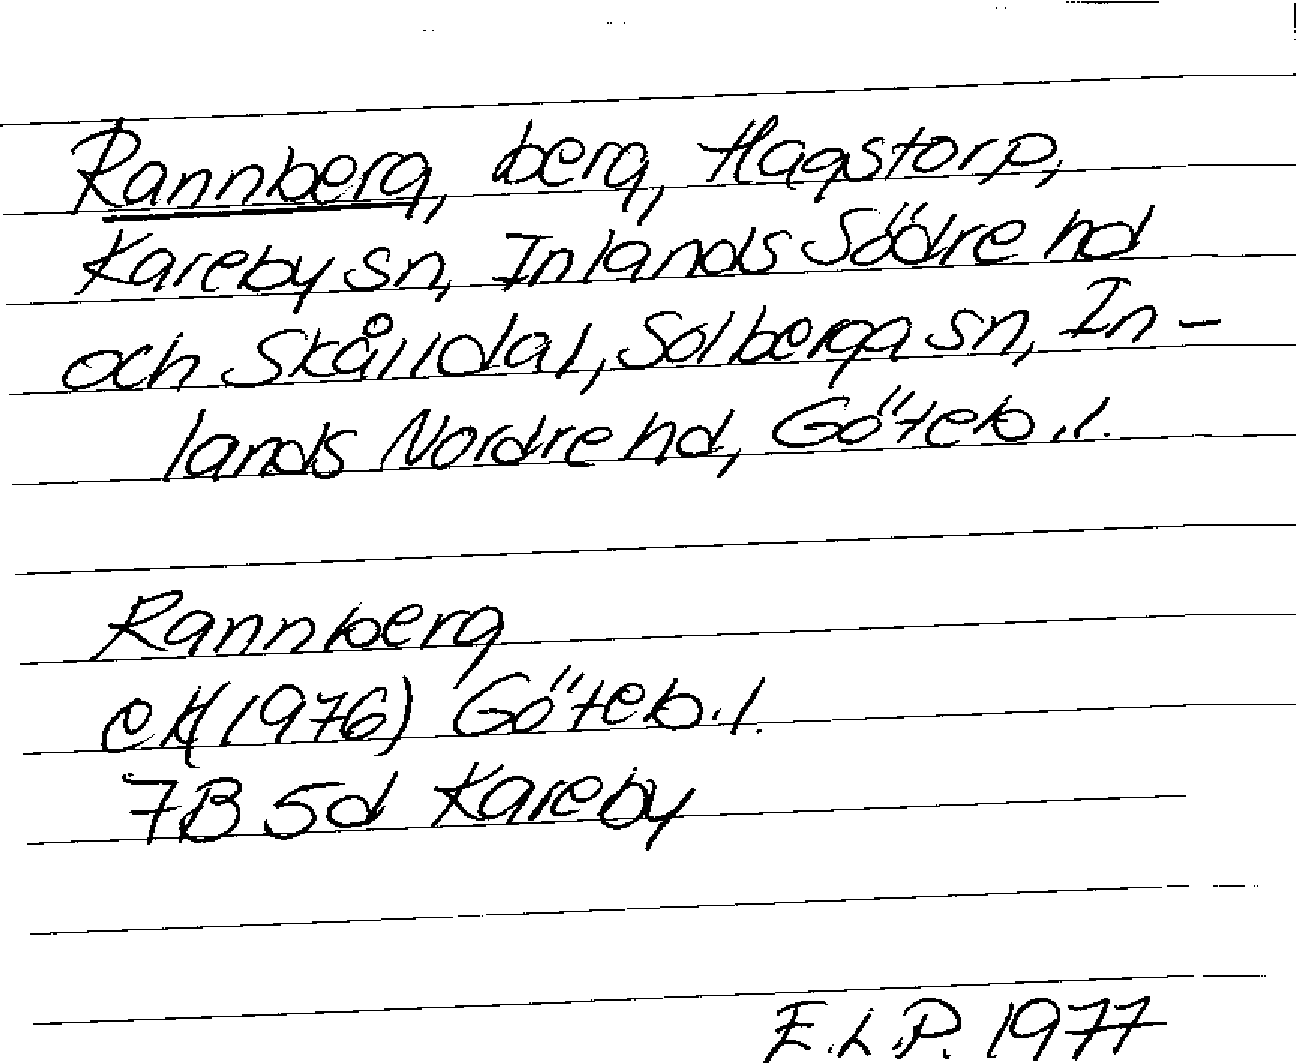 Rannberg, berg, Hagstorp,
Kareby sn, Inlands Södre hd
och Skålldal, Solberga sn, In-
lands Nordre hd, Göteb. l.
Rannberg
ek (1976) Göteb. l.
7B 5d Kareby
E.L.P. 1977